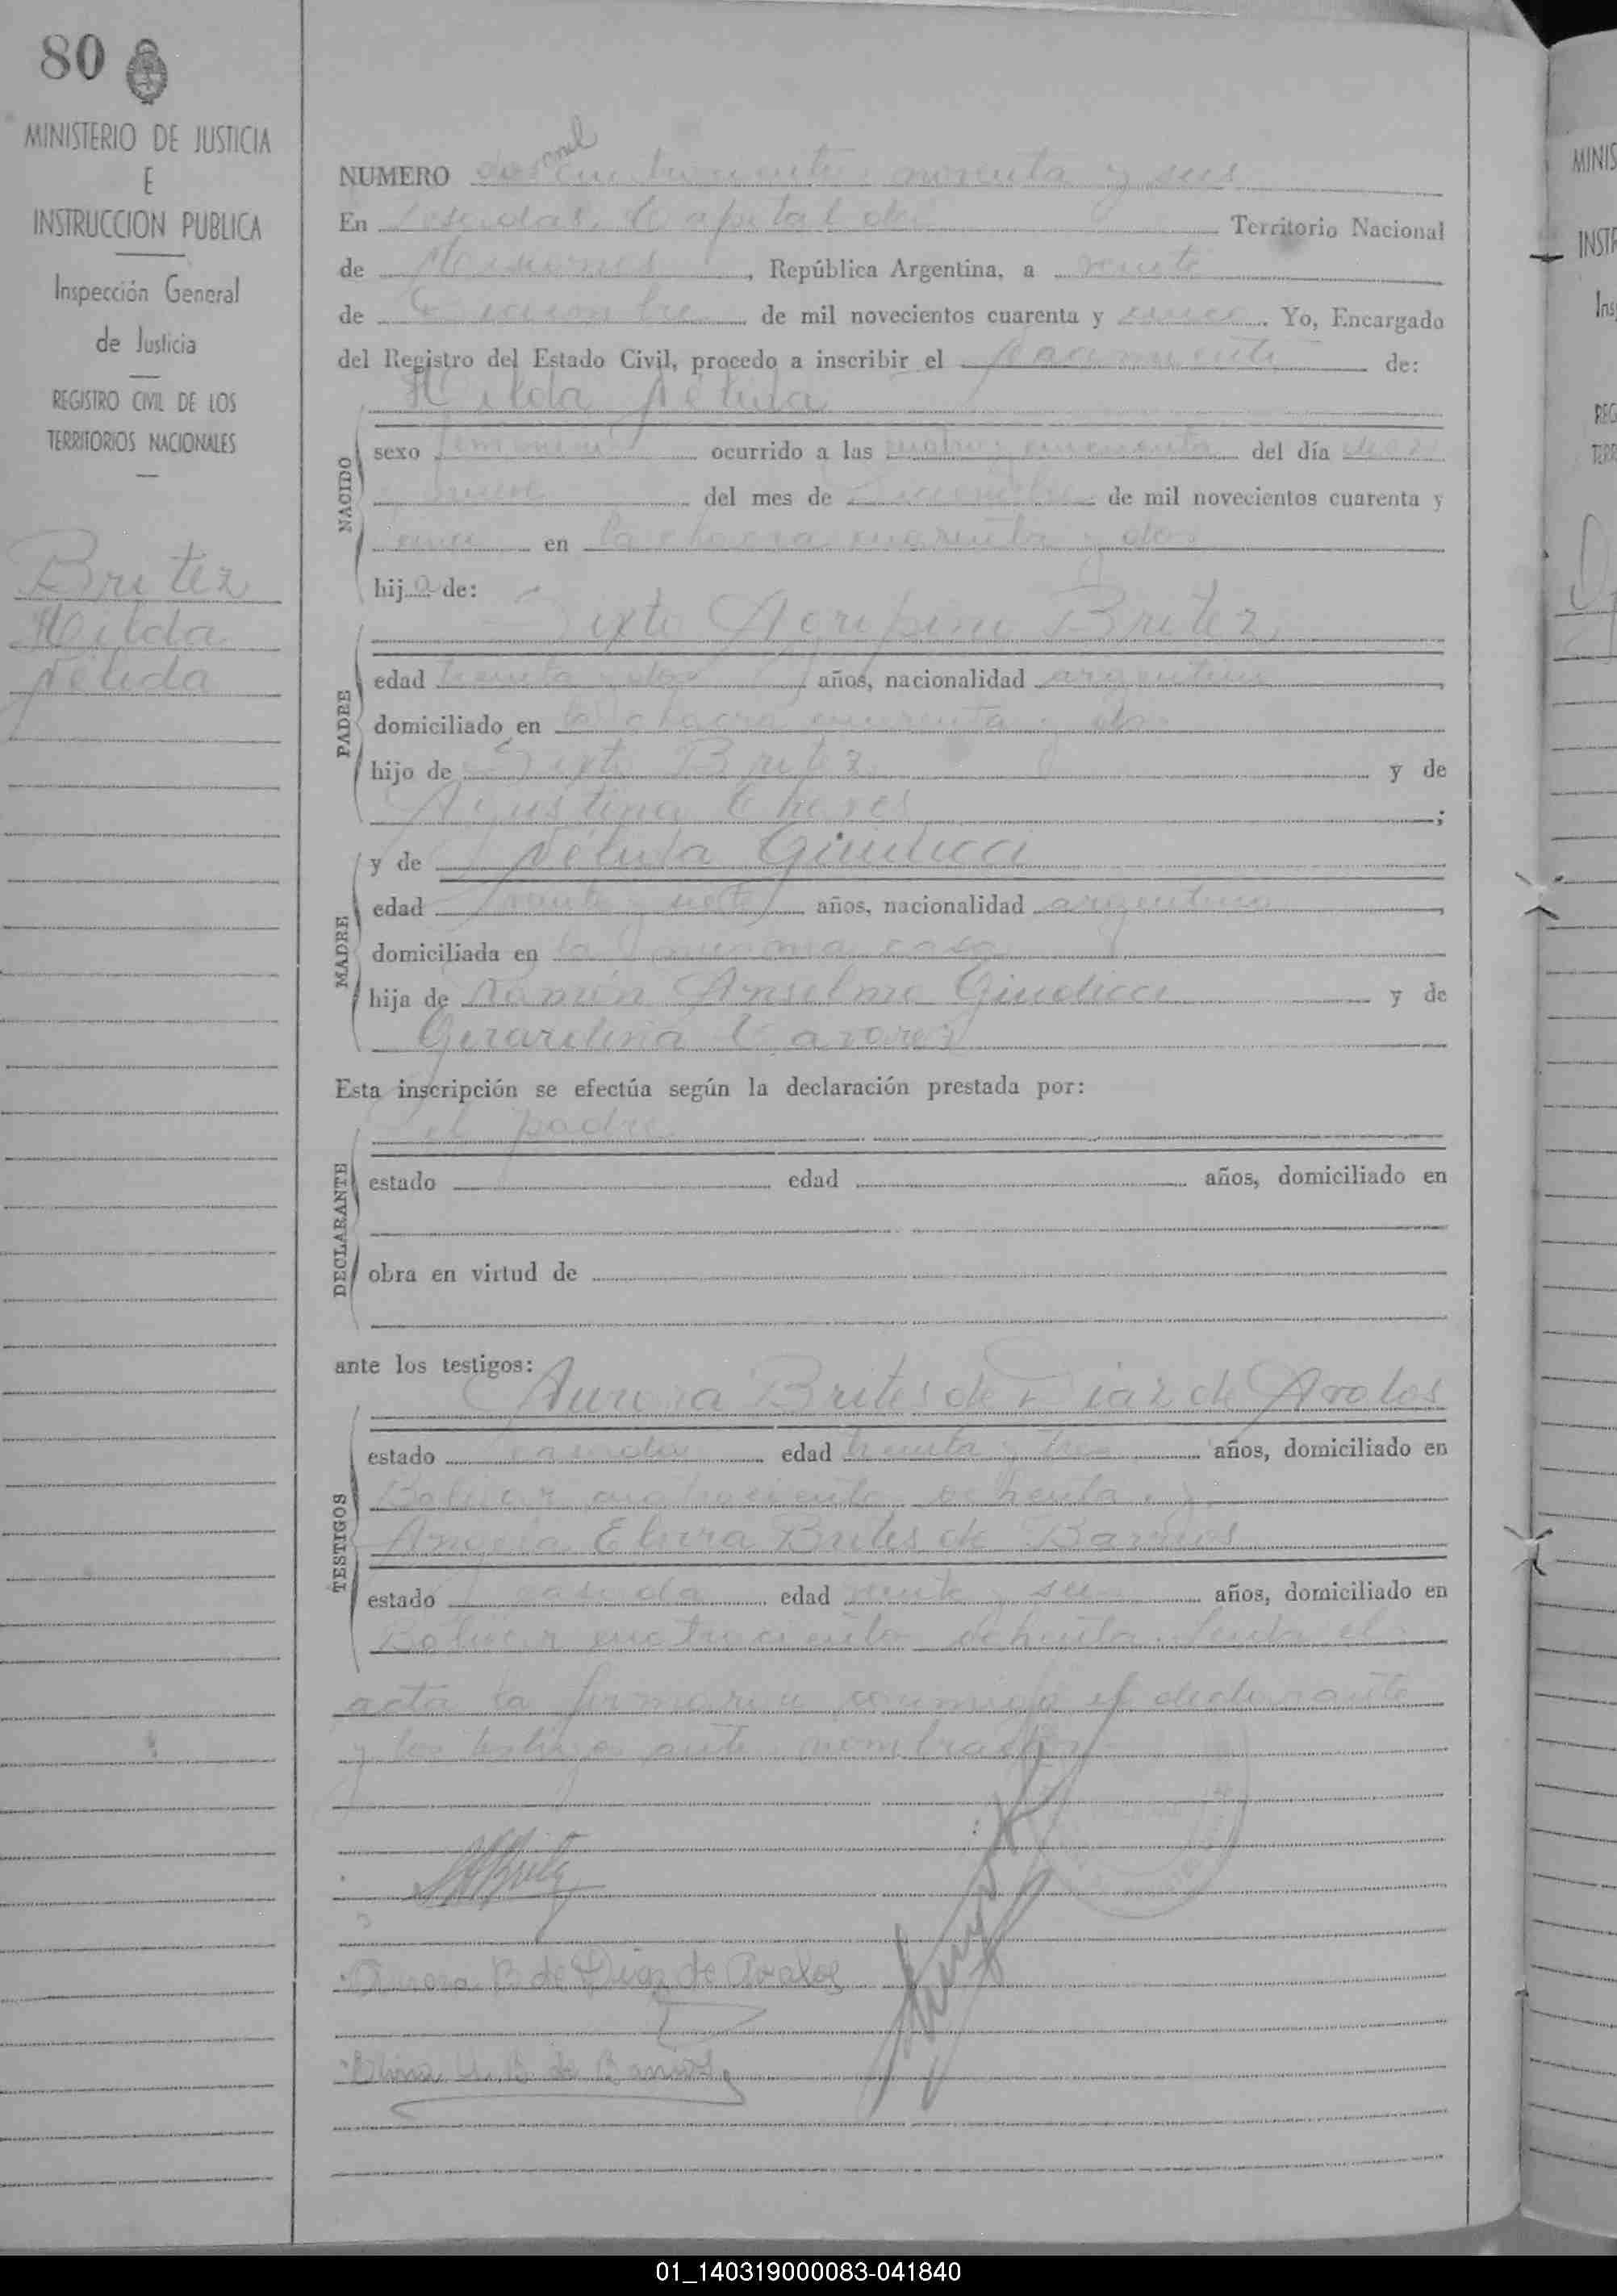 80
MINISTERIO DE JUSTICIA
E
INSTRUCCION PUBLICA
Inspección General
de Justicia
REGISTRO CIVIL DE LOS
TERRITORIOS NACIONALES
Britez
Hilda
Nélida
NUMERO dos mil noventa y seis
En Posadas, Capital del Territorio Nacional
de Misiones, República Argentina, a veinte
de Diciembre de mil novecientos cuarenta y cinco. Yo, Encargado
del Registro del Estado Civil, procedo a inscribir el nacimiento de:
Hilda Nélida
NACIDO
sexo femenino ocurrido a las cuatro y cincuenta del día diez
y nueve del mes de Diciembre de mil novecientos cuarenta y
cinco en la chacra cuarenta y dos
hija de:
Sixto Agripino Britez,
PADRE
edad treinta y dos años, nacionalidad argentino
domiciliado en la chacra cuarenta y dos
hijo de Sixto Britez y de
Agustina ;
y de Nélida Giudicci
MADRE
edad veinte y siete años, nacionalidad argentina
domiciliada en la misma casa
hija de Ramón Anselmo Giudicci y de
Gerardina
Esta inscripción se efectúa según la declaración prestada por:
el padre
DECLARANTE
estado edad años, domiciliado en
obra en virtud de
ante los testigos:
Aurora Brites de Diaz de Avalos
TESTIGOS
estado casada edad treinta y tres años, domiciliado en
Bolivar cuatrocientos ochenta y
Angela Elvira Brites de Barrios
estado casada edad veinte y seis años, domiciliado en
Bolivar cuatrocientos ochenta. Leida el
acta la firmaron conmigo el declarante
y los testigos ante nombrados
Aurora B de Diaz de Avalos
Elvira A. B. de Barrios
MINIS
INSTR
Ins
REG
TERR
01_140319000083-041840